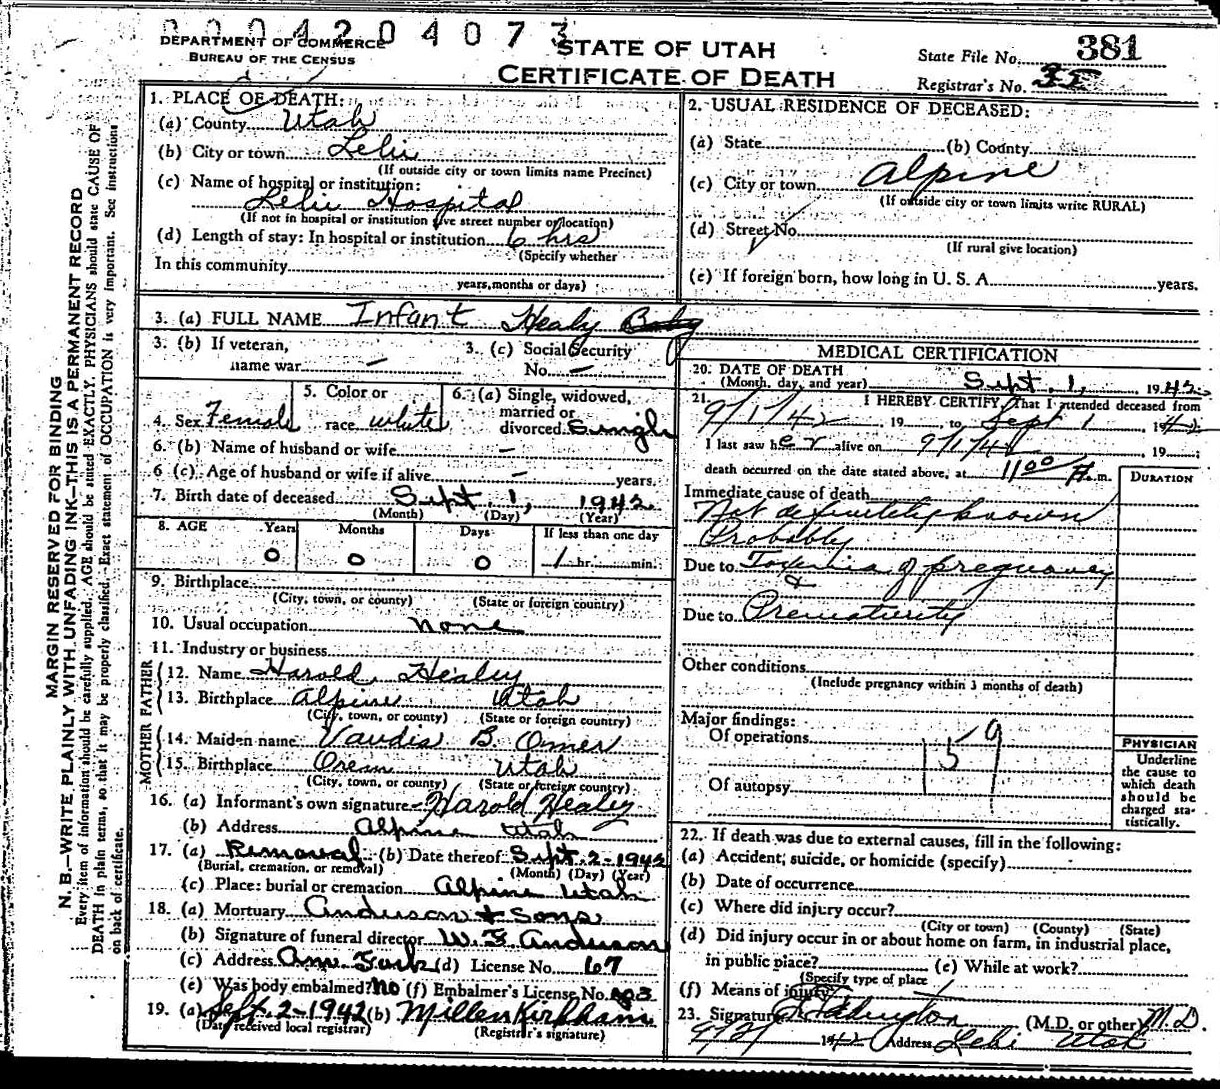 0004204073
DEPARTMENT OF COMMERCE
BUREAU OF THE CENSUS
STATE OF UTAH
CERTIFICATE OF DEATH
State File No. 381
Registrar's No. 35
MARGIN RESERVED FOR BINDING
N. B.—WRITE PLAINLY WITH UNFADING INK—THIS IS A PERMANENT RECORD
Every item of information should be carefully supplied. AGE should be stated EXACTLY. PHYSICIANS should state CAUSE OF
DEATH in plain terms, so that it may be properly classified. Exact statement of OCCUPATION is very important. See instructions
on back of certificate.
1. PLACE OF DEATH:
(a) County Utah
(b) City or town Lehi
(If outside city or town limits name Precinct)
(c) Name of hospital or institution:
Lehi Hospital
(If not in hospital or institution give street number or location)
(d) Length of stay: In hospital or institution 6 hrs
(Specify whether
In this community
years, months or days)
2. USUAL RESIDENCE OF DECEASED:
(a) State (b) County
(c) City or town Alpine
(If outside city or town limits write RURAL)
(d) Street No.
(If rural give location)
(e) If foreign born, how long in U. S. A. years.
3. (a) FULL NAME Infant Healy Baby
3. (b) If veteran,
name war —
3. (c) Social Security
No. —
4. Sex Female
5. Color or
race white
6. (a) Single, widowed,
married or
divorced Single
6. (b) Name of husband or wife —
6 (c). Age of husband or wife if alive — years.
7. Birth date of deceased Sept. 1, 1942
(Month) (Day) (Year)
8. AGE Years Months Days If less than one day
0 0 0 1 hr. min.
9. Birthplace
(City, town, or county) (State or foreign country)
10. Usual occupation none
11. Industry or business
FATHER
12. Name Harold Healey
13. Birthplace Alpine Utah
(City, town, or county) (State or foreign country)
MOTHER
14. Maiden name Vaudis B. Omer
15. Birthplace Orem Utah
(City, town, or county) (State or foreign country)
16. (a) Informant's own signature Harold Healey
(b) Address Alpine Utah
17. (a) Removal (b) Date thereof Sept. 2-1942
(Burial, cremation, or removal) (Month) (Day) (Year)
(c) Place: burial or cremation Alpine Utah
18. (a) Mortuary Anderson & Sons
(b) Signature of funeral director W. F. Anderson
(c) Address Am. Fork (d) License No. 67
(e) Was body embalmed? no (f) Embalmer's License No.
19. (a) Sept. 2-1942 (b) Millen Kirkham
(Date received local registrar) (Registrar's signature)
MEDICAL CERTIFICATION
20. DATE OF DEATH
(Month, day, and year) Sept. 1, 1942
21. I HEREBY CERTIFY, That I attended deceased from
9/1/42, 19 to Sept 1 1942
I last saw her alive on 9/1/42, 19
death occurred on the date stated above, at 11 00 A.m.
DURATION
Immediate cause of death
Not definitely known
Probably
Due to Toxemia of pregnancy
&
Due to Prematurity
Other conditions
(Include pregnancy within 3 months of death)
Major findings:
Of operations
159
Of autopsy
PHYSICIAN
Underline
the cause to
which death
should be
charged sta-
tistically.
22. If death was due to external causes, fill in the following:
(a) Accident, suicide, or homicide (specify)
(b) Date of occurrence
(c) Where did injury occur?
(City or town) (County) (State)
(d) Did injury occur in or about home on farm, in industrial place,
in public place? (e) While at work?
(Specify type of place
(f) Means of injury
23. Signature (M.D. or other) M.D.
9/2/ 1942 Address Lehi Utah